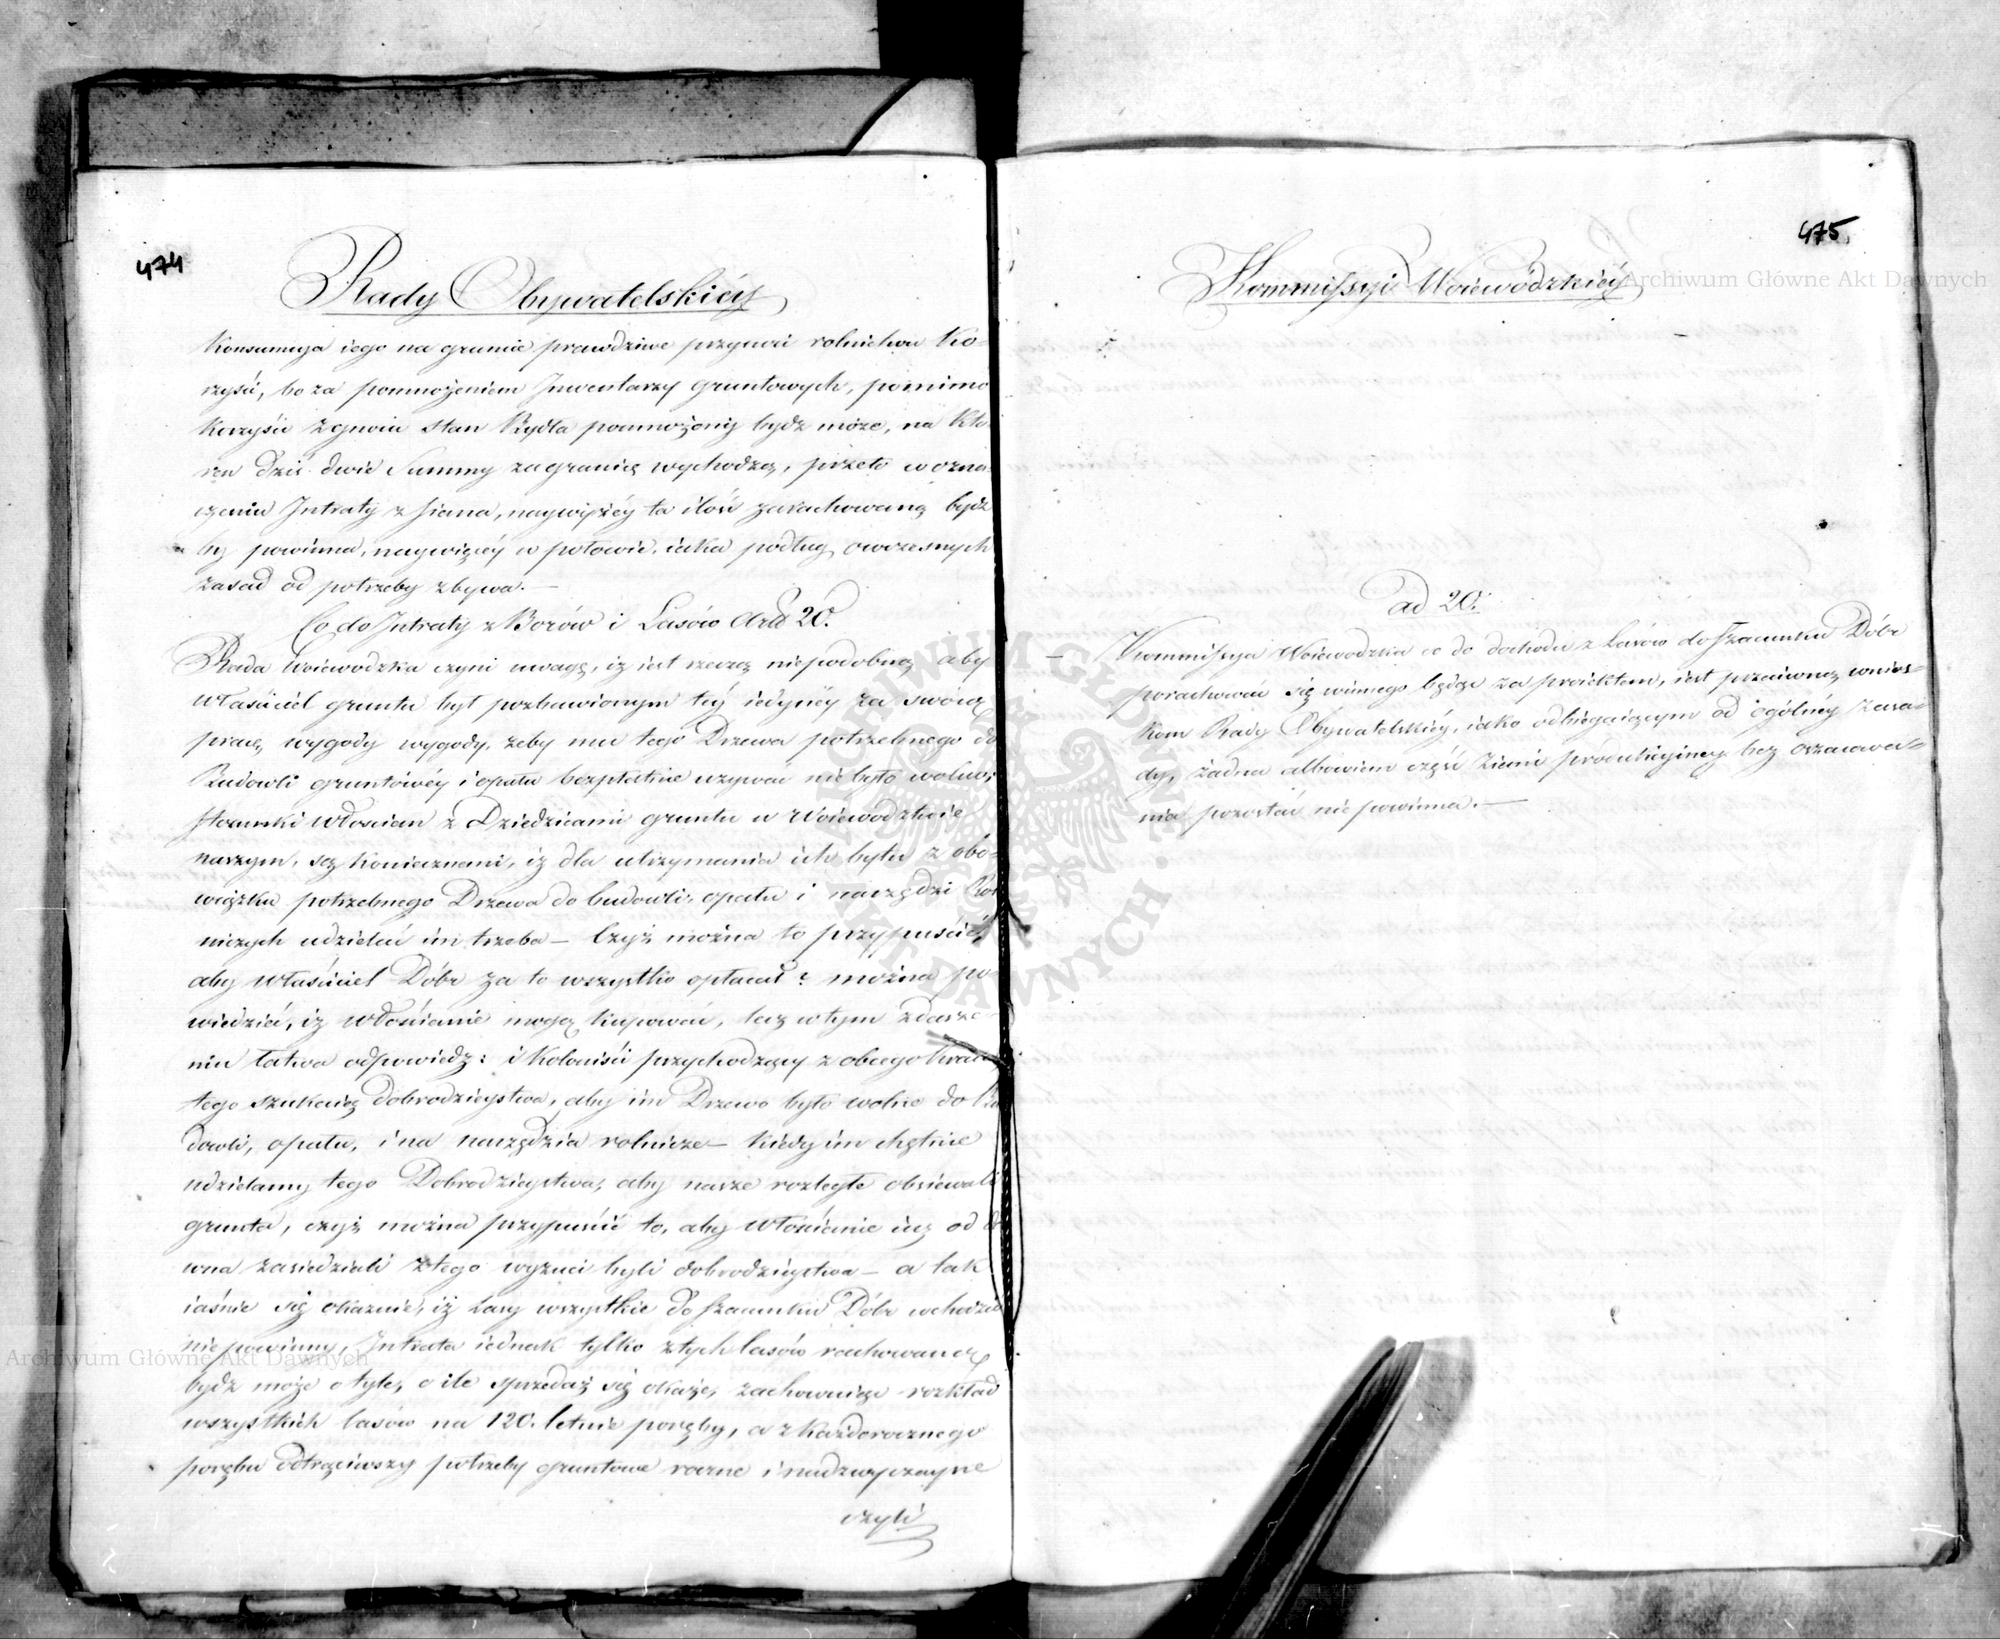 474
Rady Obywatelskiéy
Konsumcya iego na gruncie prawdziwe przynosi rolnictwu Ko-
rzyści, bo za pomnożeniem Inwentarzy gruntowych, pomimo
Korzyści z gnoiu stan Bydła pomnożony bydź może, na któ-
ren dziś dwie Summy zagranicę wychodzą, przeto w ozna-
czeniu Intraty z Siana, naywięcéy ta ilość zarachowaną bydź
by powinna, naywięcéy w połowie, iaka podług owczesnych
zasad od potrzeby zbywa.—
Co do Intraty z Borów i Lasów Art 20.
Rada Woiewodzka czyni uwagę, iż iest rzeczą niepodobną aby
właściciel gruntu był pozbawionym téy iedynéy za swoią
pracę wygody wygody, żeby mu tego Drzewa potrzebnego do
Budowli gruntowéy i opału bezpłatnie używać nie było wolno;
stosunki włościan z Dziedzicami gruntu w Woiewodztwie
naszym, są koniecznemi, iż dla utrzymania ich bytu z obo-
wiązku potrzebnego Drzewa do budowli, opału i narzędzi Rol
niczych udzielać im trzeba— Czyż można to przypuścić,
aby właściciel Dóbr za to wszystko opłacał? można po-
wiedzieć, iż włościanie mogą kupować, lecz w tym zdarze-
niu łatwa odpowiedź: i Koloniści przychodzący z obcego kraiu
tego szukaią dobrodzieystwa, aby im Drzewo było wolne do Bu
dowli, opału, i na narzędzia rolnicze— kiedy im chętnie
udzielamy tego Dobrodzieystwa, aby nasze rozległe obsiewali
grunta, czyż można przypuścić to, aby włościanie iuż od da
wna zasiedziali z tego wyzuci byli dobrodzieystwa— a tak
iaśnie się okaznie, iż Lasy wszystkie do szacunku Dóbr wchodzić
niepowinny, Intrata iednak tylko z tych lasów rachowaną
bydź może o tyle, o ile sprzedaż się okaże, zachowuiąc rozkład
wszystkich lasów na 120. letnie poręby, a z każdorocznego
porębu odtrąciwszy potrzeby gruntowe roczne i nadzwyczayne
czyli
475
Kommissyi Woiewódzkiéy
ad 20.
— Kommissya Woiewodzka co do dochodu z Lasów do szacunku Dóbr
porachować się winnego będąc za proiektem, iest przeciwną wnios-
kom Rady Obywatelskiéy, iako odbiegaiącym od ogólnéy zasa-
dy, żadna albowiem część Ziemi produkcyiney bez oszacowa-
nia pozostać nie powinna.—
Archiwum Główne Akt Dawnych
Archiwum Główne Akt Dawnych
ARCHIWUM GŁÓWNE AKT DAWNYCH